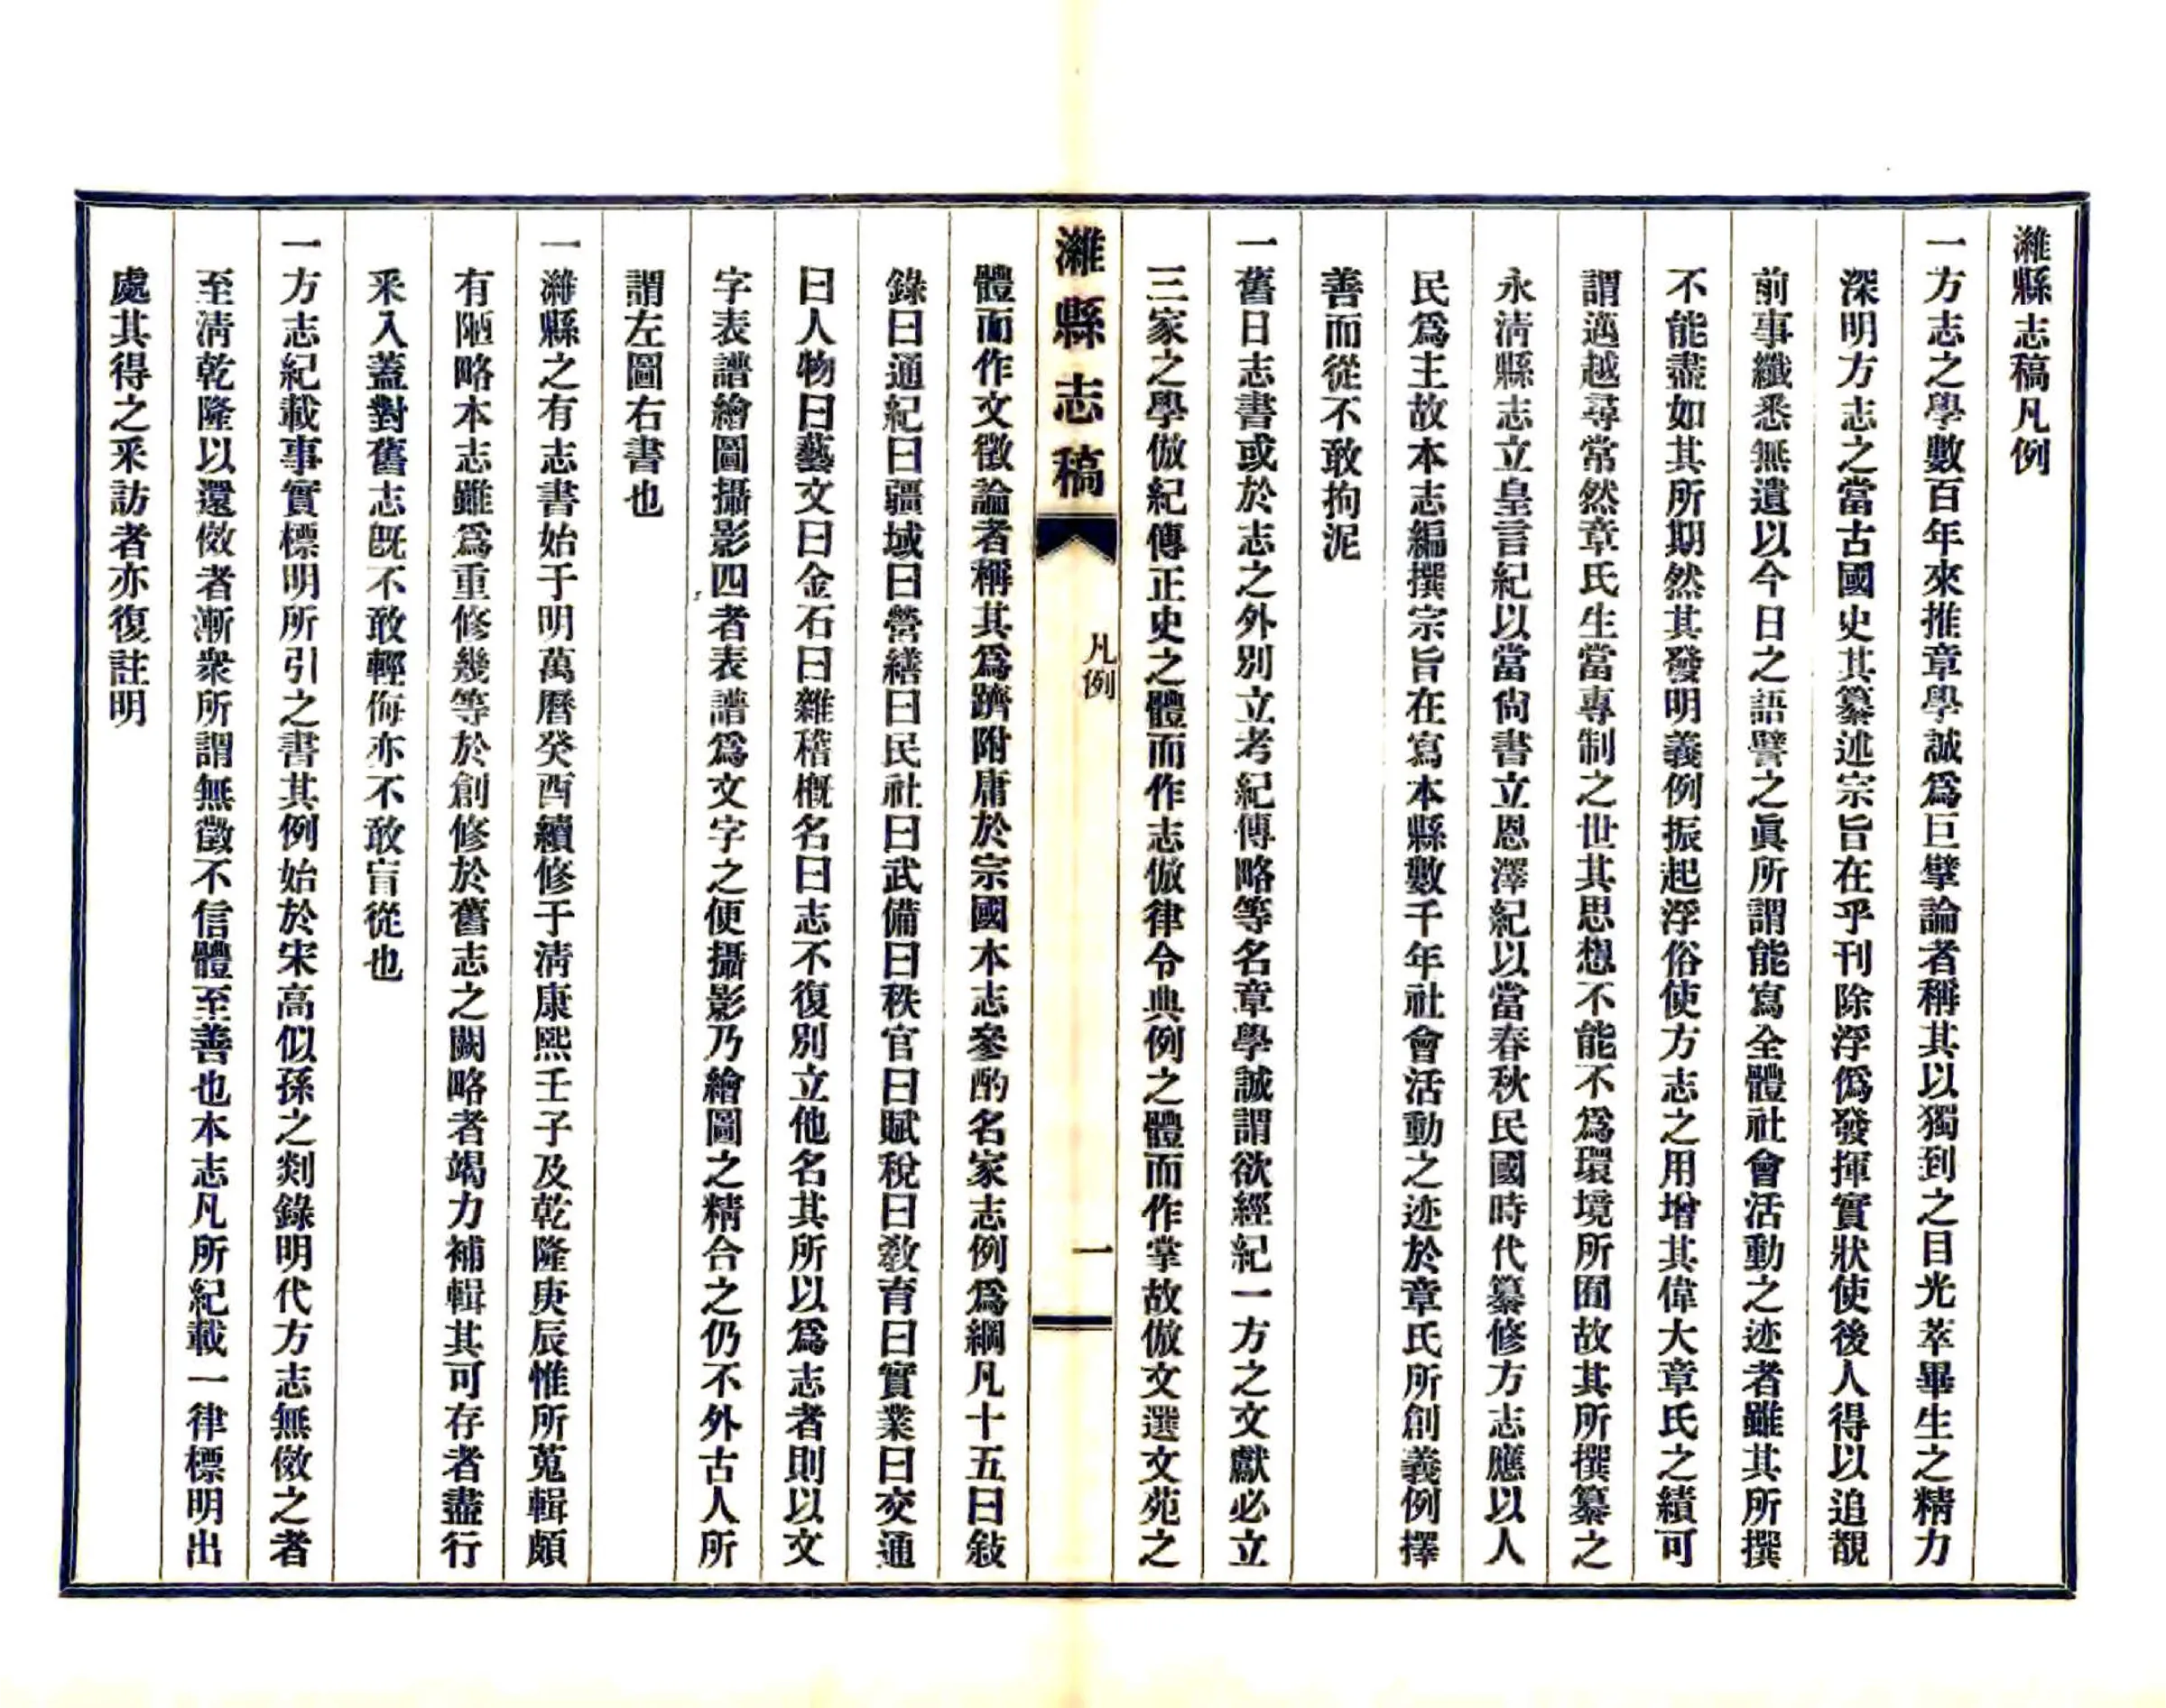 濰縣志稿凡例
一方志之學數百年來推章學誠爲巨擘論者稱其以獨到之目光萃畢生之精力
深明方志之當古國史其纂述宗旨在乎刊除浮僞發揮實狀使後人得以追覩
前事纖悉無遺以今日之語譬之眞所謂能寫全體社會活動之迹者雖其所撰
不能盡如其所期然其發明義例振起浮俗使方志之用增其偉大章氏之績可
謂邁越尋常然章氏生當專制之世其思想不能不爲環境所囿故其所撰纂之
永淸縣志立皇言紀以當尙書立恩澤紀以當春秋民國時代纂修方志應以人
民爲主故本志編撰宗旨在寫本縣數千年社會活動之迹於章氏所創義例擇
善而從不敢拘泥
一舊日志書或於志之外別立考紀傳略等名章學誠謂欲經紀一方之文獻必立
三家之學倣紀傳正史之體而作志倣律令典例之體而作掌故倣文選文苑之
濰縣志稿
凡例
一
體而作文徵論者稱其爲躋附庸於宗國本志參酌名家志例爲綱凡十五曰敍
錄曰通紀曰疆域曰營繕曰民社曰武備曰秩官曰賦稅曰敎育曰實業曰交通
曰人物曰藝文曰金石曰雜稽槪名曰志不復別立他名其所以爲志者則以文
字表譜繪圖攝影四者表譜爲文字之便攝影乃繪圖之精合之仍不外古人所
謂左圖右書也
一濰縣之有志書始于明萬曆癸酉續修于淸康熙壬子及乾隆庚辰惟所蒐輯頗
有陋略本志雖爲重修幾等於創修於舊志之闕略者竭力補輯其可存者盡行
釆入蓋對舊志旣不敢輕侮亦不敢盲從也
一方志紀載事實標明所引之書其例始於宋高似孫之剡錄明代方志無倣之者
至淸乾隆以還倣者漸衆所謂無徵不信體至善也本志凡所紀載一律標明出
處其得之釆訪者亦復註明